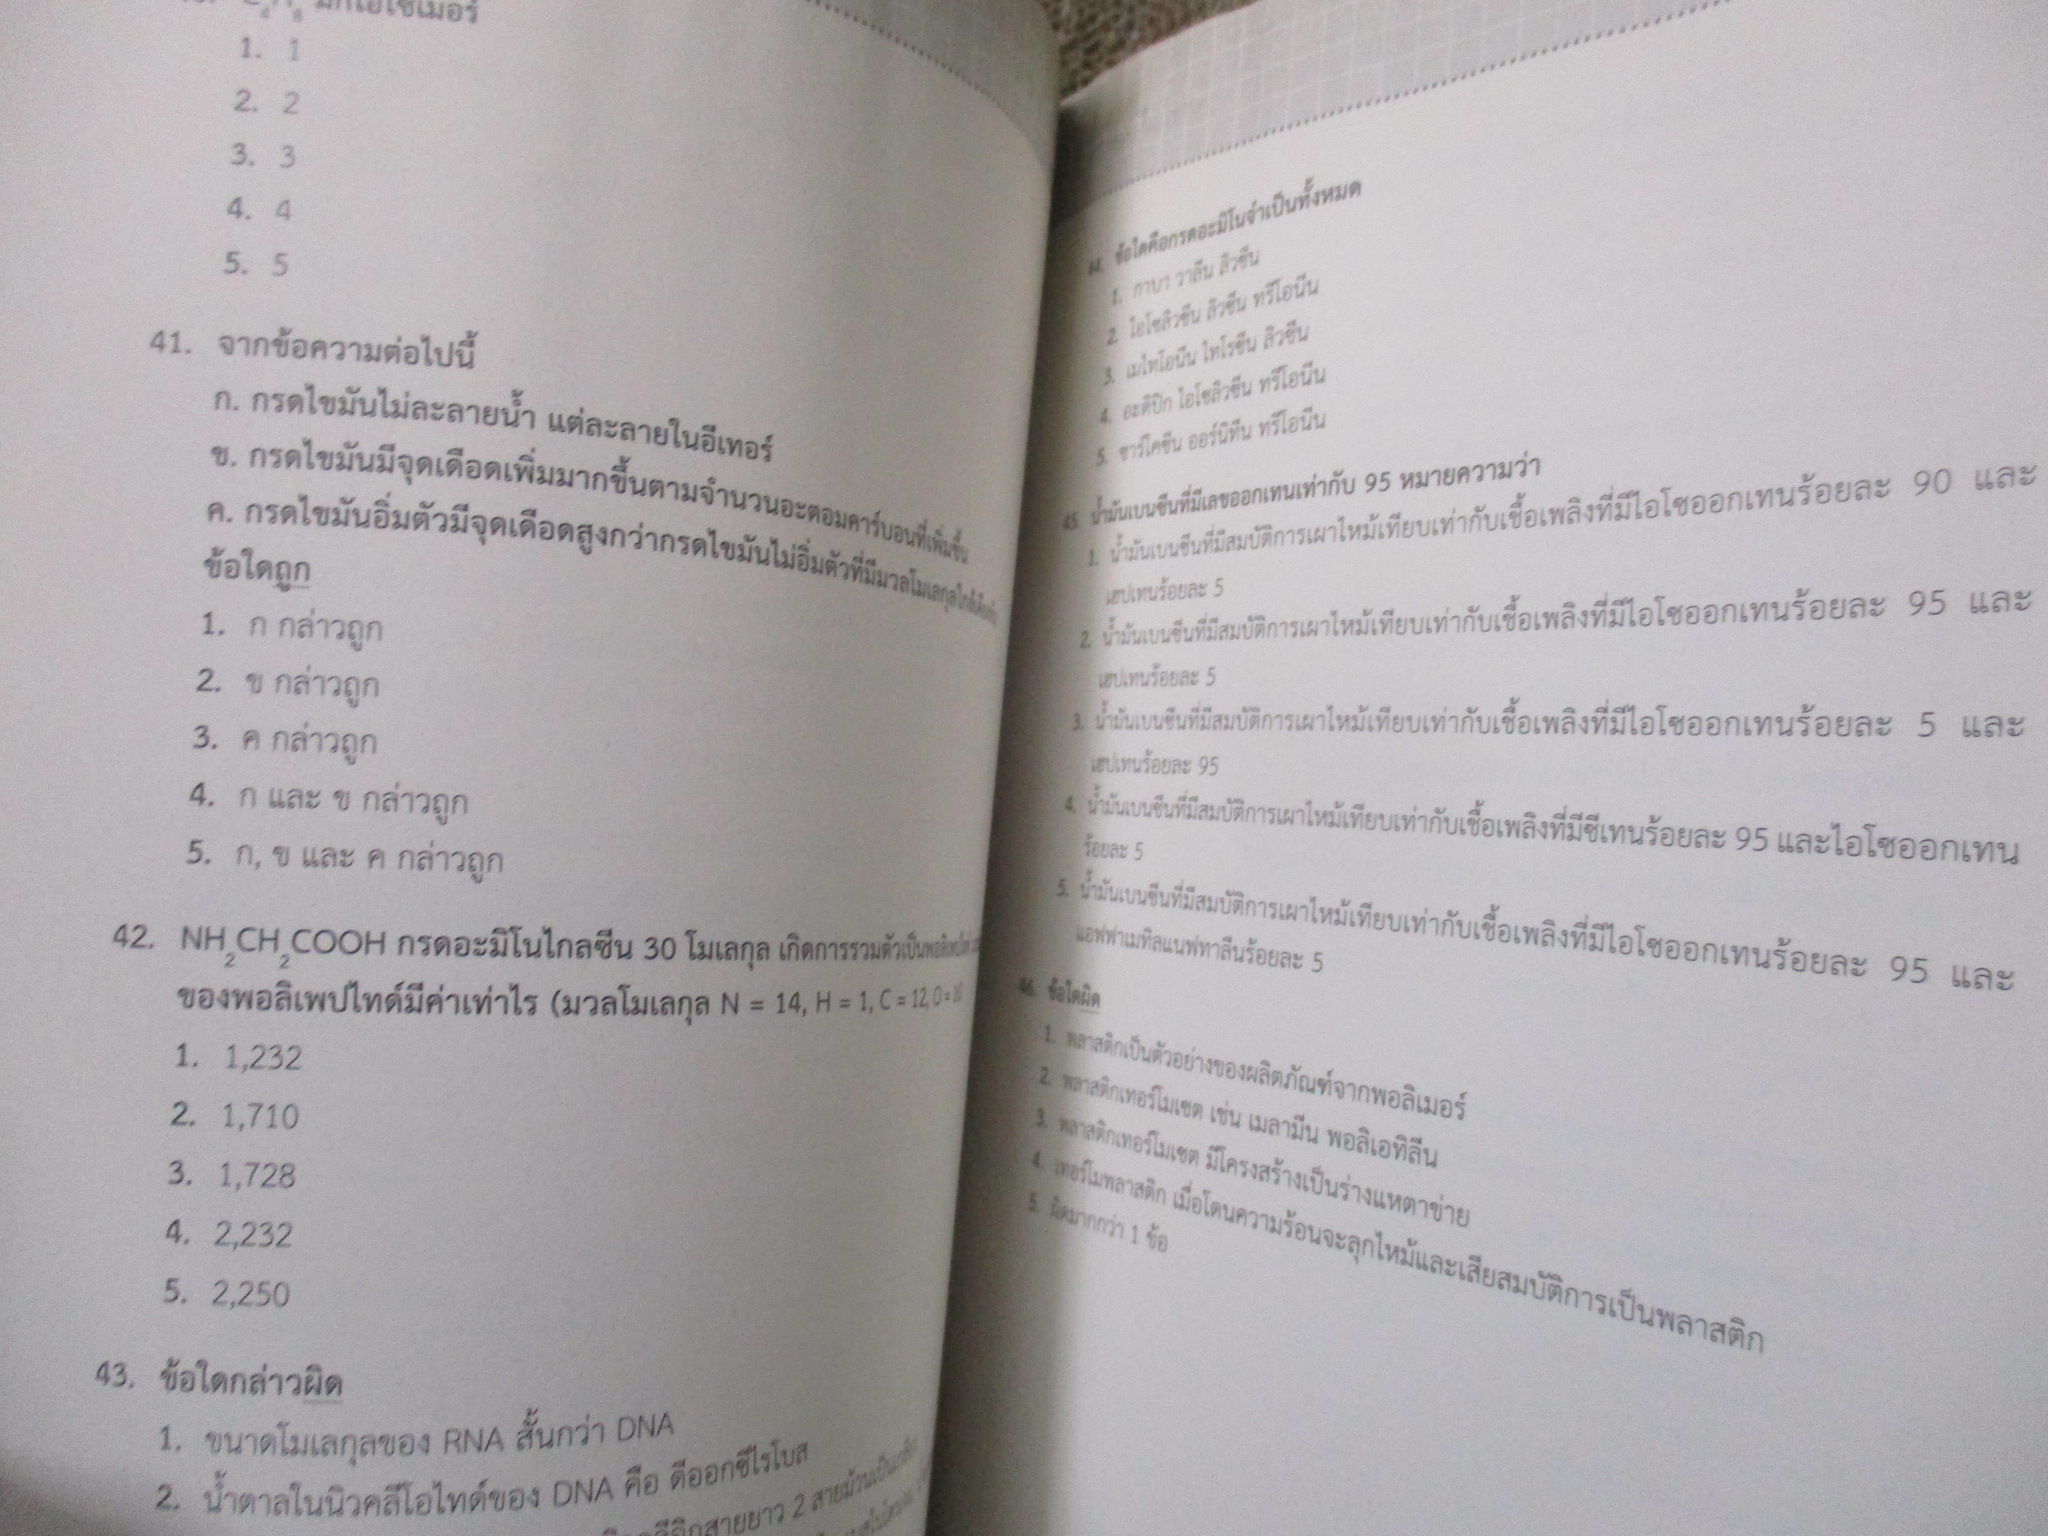 มีกี่ไอโซเมอร์
1. 1
2. 2
3. 3
4. 4
5. 5
41. จากข้อความต่อไปนี้
ก. กรดไขมันไม่ละลายน้ำ แต่ละลายในอีเทอร์
ข. กรดไขมันมีจุดเดือดเพิ่มมากขึ้นตามจำนวนอะตอมคาร์บอนที่เพิ่มขึ้น
ค. กรดไขมันอิ่มตัวมีจุดเดือดสูงกว่ากรดไขมันไม่อิ่มตัวที่มีมวลโมเลกุลใกล้เคียงกัน
ข้อใดถูก
1. ก กล่าวถูก
2. ข กล่าวถูก
3. ค กล่าวถูก
4. ก และ ข กล่าวถูก
5. ก, ข และ ค กล่าวถูก
42. NH₂CH₂COOH กรดอะมิโนไกลซีน 30 โมเลกุล เกิดการรวมตัวเป็นพอลิเพปไทด์
ของพอลิเพปไทด์มีค่าเท่าไร (มวลโมเลกุล N = 14, H = 1, C = 12, O = 16)
1. 1,232
2. 1,710
3. 1,728
4. 2,232
5. 2,250
43. ข้อใดกล่าวผิด
1. ขนาดโมเลกุลของ RNA สั้นกว่า DNA
2. น้ำตาลในนิวคลีโอไทด์ของ DNA คือ ดีออกซีไรโบส
สายยาว 2 สายม้วนเป็นเกลียว
44. ข้อใดคือกรดอะมิโนจำเป็นทั้งหมด
1. กาบา วาลีน ลิวซีน
2. ไอโซลิวซีน ลิวซีน ทรีโอนีน
3. เมไทโอนีน ไทโรซีน ลิวซีน
4. อะดิปิก ไอโซลิวซีน ทรีโอนีน
5. ซาร์โคซีน ออร์นิทีน ทรีโอนีน
45. น้ำมันเบนซีนที่มีเลขออกเทนเท่ากับ 95 หมายความว่า
1. น้ำมันเบนซีนที่มีสมบัติการเผาไหม้เทียบเท่ากับเชื้อเพลิงที่มีไอโซออกเทนร้อยละ 90 และ
เฮปเทนร้อยละ 5
2. น้ำมันเบนซีนที่มีสมบัติการเผาไหม้เทียบเท่ากับเชื้อเพลิงที่มีไอโซออกเทนร้อยละ 95 และ
เฮปเทนร้อยละ 5
3. น้ำมันเบนซีนที่มีสมบัติการเผาไหม้เทียบเท่ากับเชื้อเพลิงที่มีไอโซออกเทนร้อยละ 5 และ
เฮปเทนร้อยละ 95
4. น้ำมันเบนซีนที่มีสมบัติการเผาไหม้เทียบเท่ากับเชื้อเพลิงที่มีซีเทนร้อยละ 95 และไอโซออกเทน
ร้อยละ 5
5. น้ำมันเบนซีนที่มีสมบัติการเผาไหม้เทียบเท่ากับเชื้อเพลิงที่มีไอโซออกเทนร้อยละ 95 และ
แอฟฟาเมทิลแนฟทาลีนร้อยละ 5
46. ข้อใดผิด
1. พลาสติกเป็นตัวอย่างของผลิตภัณฑ์จากพอลิเมอร์
2. พลาสติกเทอร์โมเซต เช่น เมลามีน พอลิเอทิลีน
3. พลาสติกเทอร์โมเซต มีโครงสร้างเป็นร่างแหตาข่าย
4. เทอร์โมพลาสติก เมื่อโดนความร้อนจะลุกไหม้และเสียสมบัติการเป็นพลาสติก
5. ผิดมากกว่า 1 ข้อ